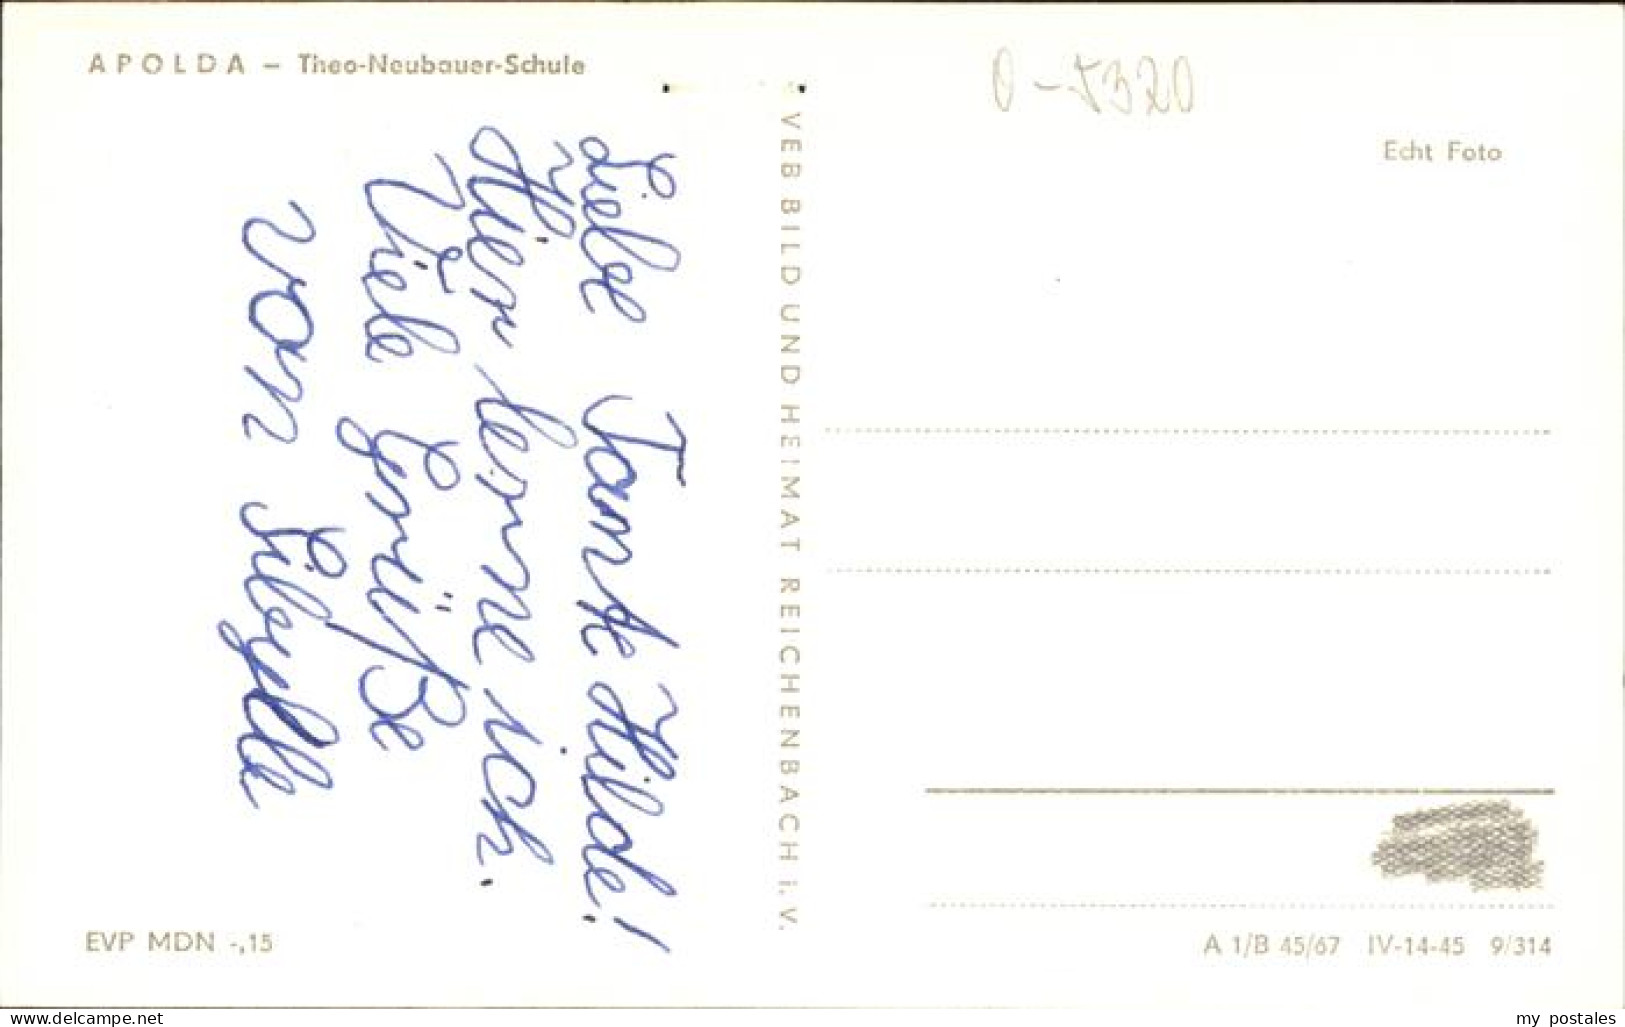 APOLDA – Theo-Neubauer-Schule
Liebe Tante Hilde!
Hier lerne ich.
Viele Grüße
von Sibylle
EVP MDN -,15
VEB BILD UND HEIMAT REICHENBACH i. V.
O-5320
Echt Foto
A 1/B 45/67 IV-14-45 9/314
www.delcampe.net
my_postales